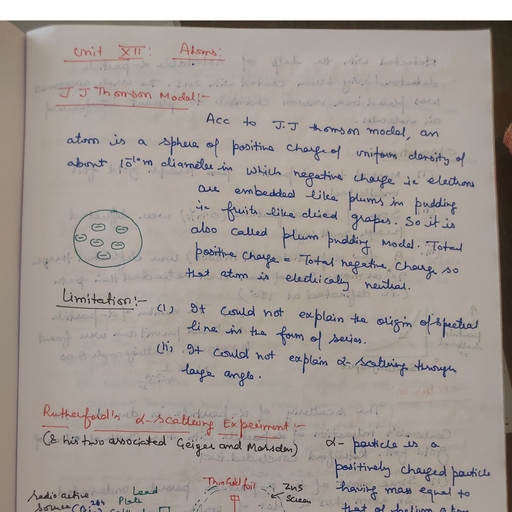 Unit XII: Atoms:
J J Thomson Model:-
Acc to J.J thomson model, an
atom is a sphere of positive charge of uniform density of
about 10⁻¹⁰m diameter in which negative charge ie electrons
are embedded like plums in pudding
ie fruits like dried grapes. So it is
also called plum pudding Model. Total
positive charge = Total negative charge so
that atom is electrically neutral.
Limitation:- (i) It could not explain the origin of spectral
line in the form of series.
(ii) It could not explain α-scattring through
large angle.
Rutherfold's α-scattering Experiment:-
(& his two associated Geiger and Marsden)
α- particle is a
positively charged particle
having mass equal to
that of helium
Thin Gold foil
ZnS
Screen
Lead
Plate
radio active
source